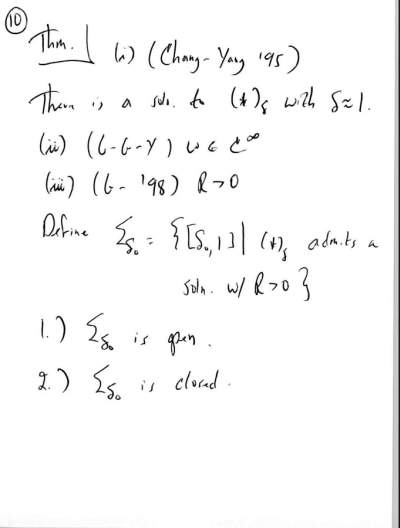 10
Thm. (i) (Chang-Yang '95)
There is a soln. to (*)δ with δ≈1.
(ii) (G-G-Y) w ∈ C∞
(iii) (G- '98) R>0
Define Σδ₀ = {[δ₀,1] | (*)δ admits a
soln. w/ R>0}
1.) Σδ₀ is open.
2.) Σδ₀ is closed.